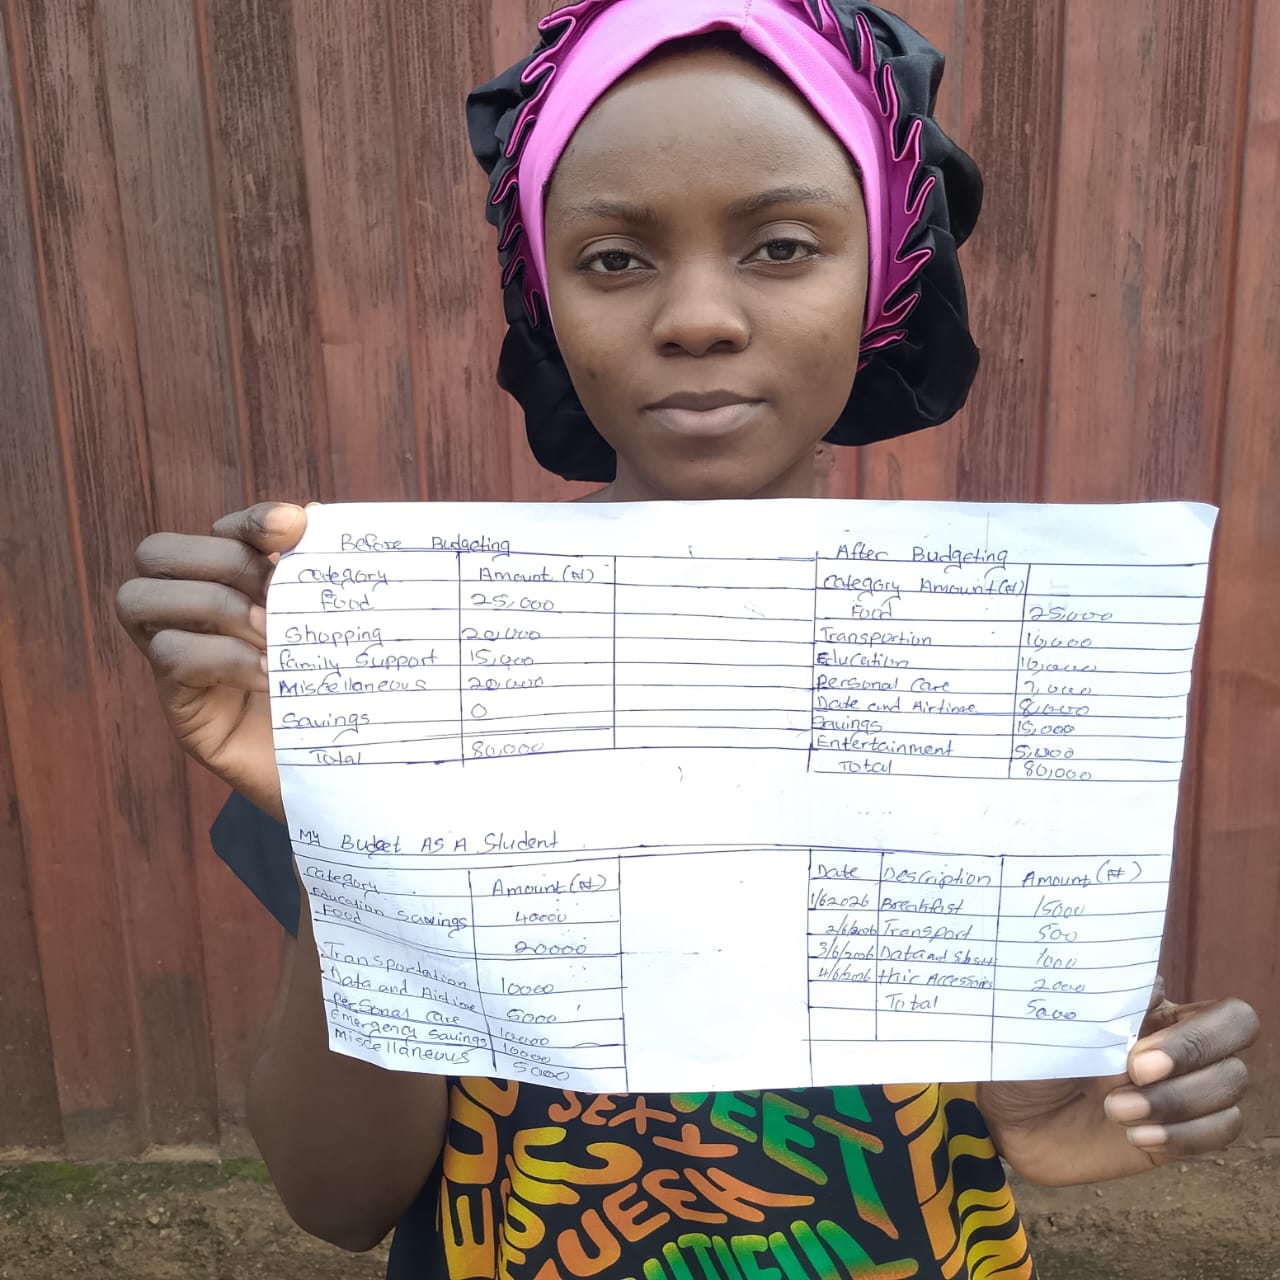 Before Budgeting
Category Amount (₦)
Food 25,000
Shopping 20,000
family Support 15,000
Miscellaneous 20,000
Savings 0
Total 80,000
After Budgeting
Category Amount (₦)
Food 25,000
Transportion 10,000
Education 10,000
Personal Care 7,000
Date and Airtime 8,000
Savings 15,000
Entertainment 5,000
Total 80,000
My Budget AS A Student
Category Amount (₦)
Education Savings 40000
Food 20000
Transportation 10000
Data and Airtime 5000
Personal Care 10000
Emergency Savings 10000
Miscellaneous 5000
Date Description Amount (₦)
1/6/2026 Breakfast 1500
2/6/2026 Transport 500
3/6/2026 Data and 1000
4/6/2026 Hair Accessories 2000
Total 5000
SEXY
SWEET
QUEEN
BEAUTIFUL